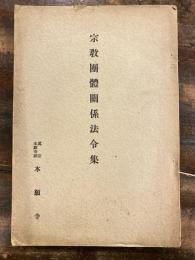 宗教團體關係法令集
真宗
本願寺派
本願寺